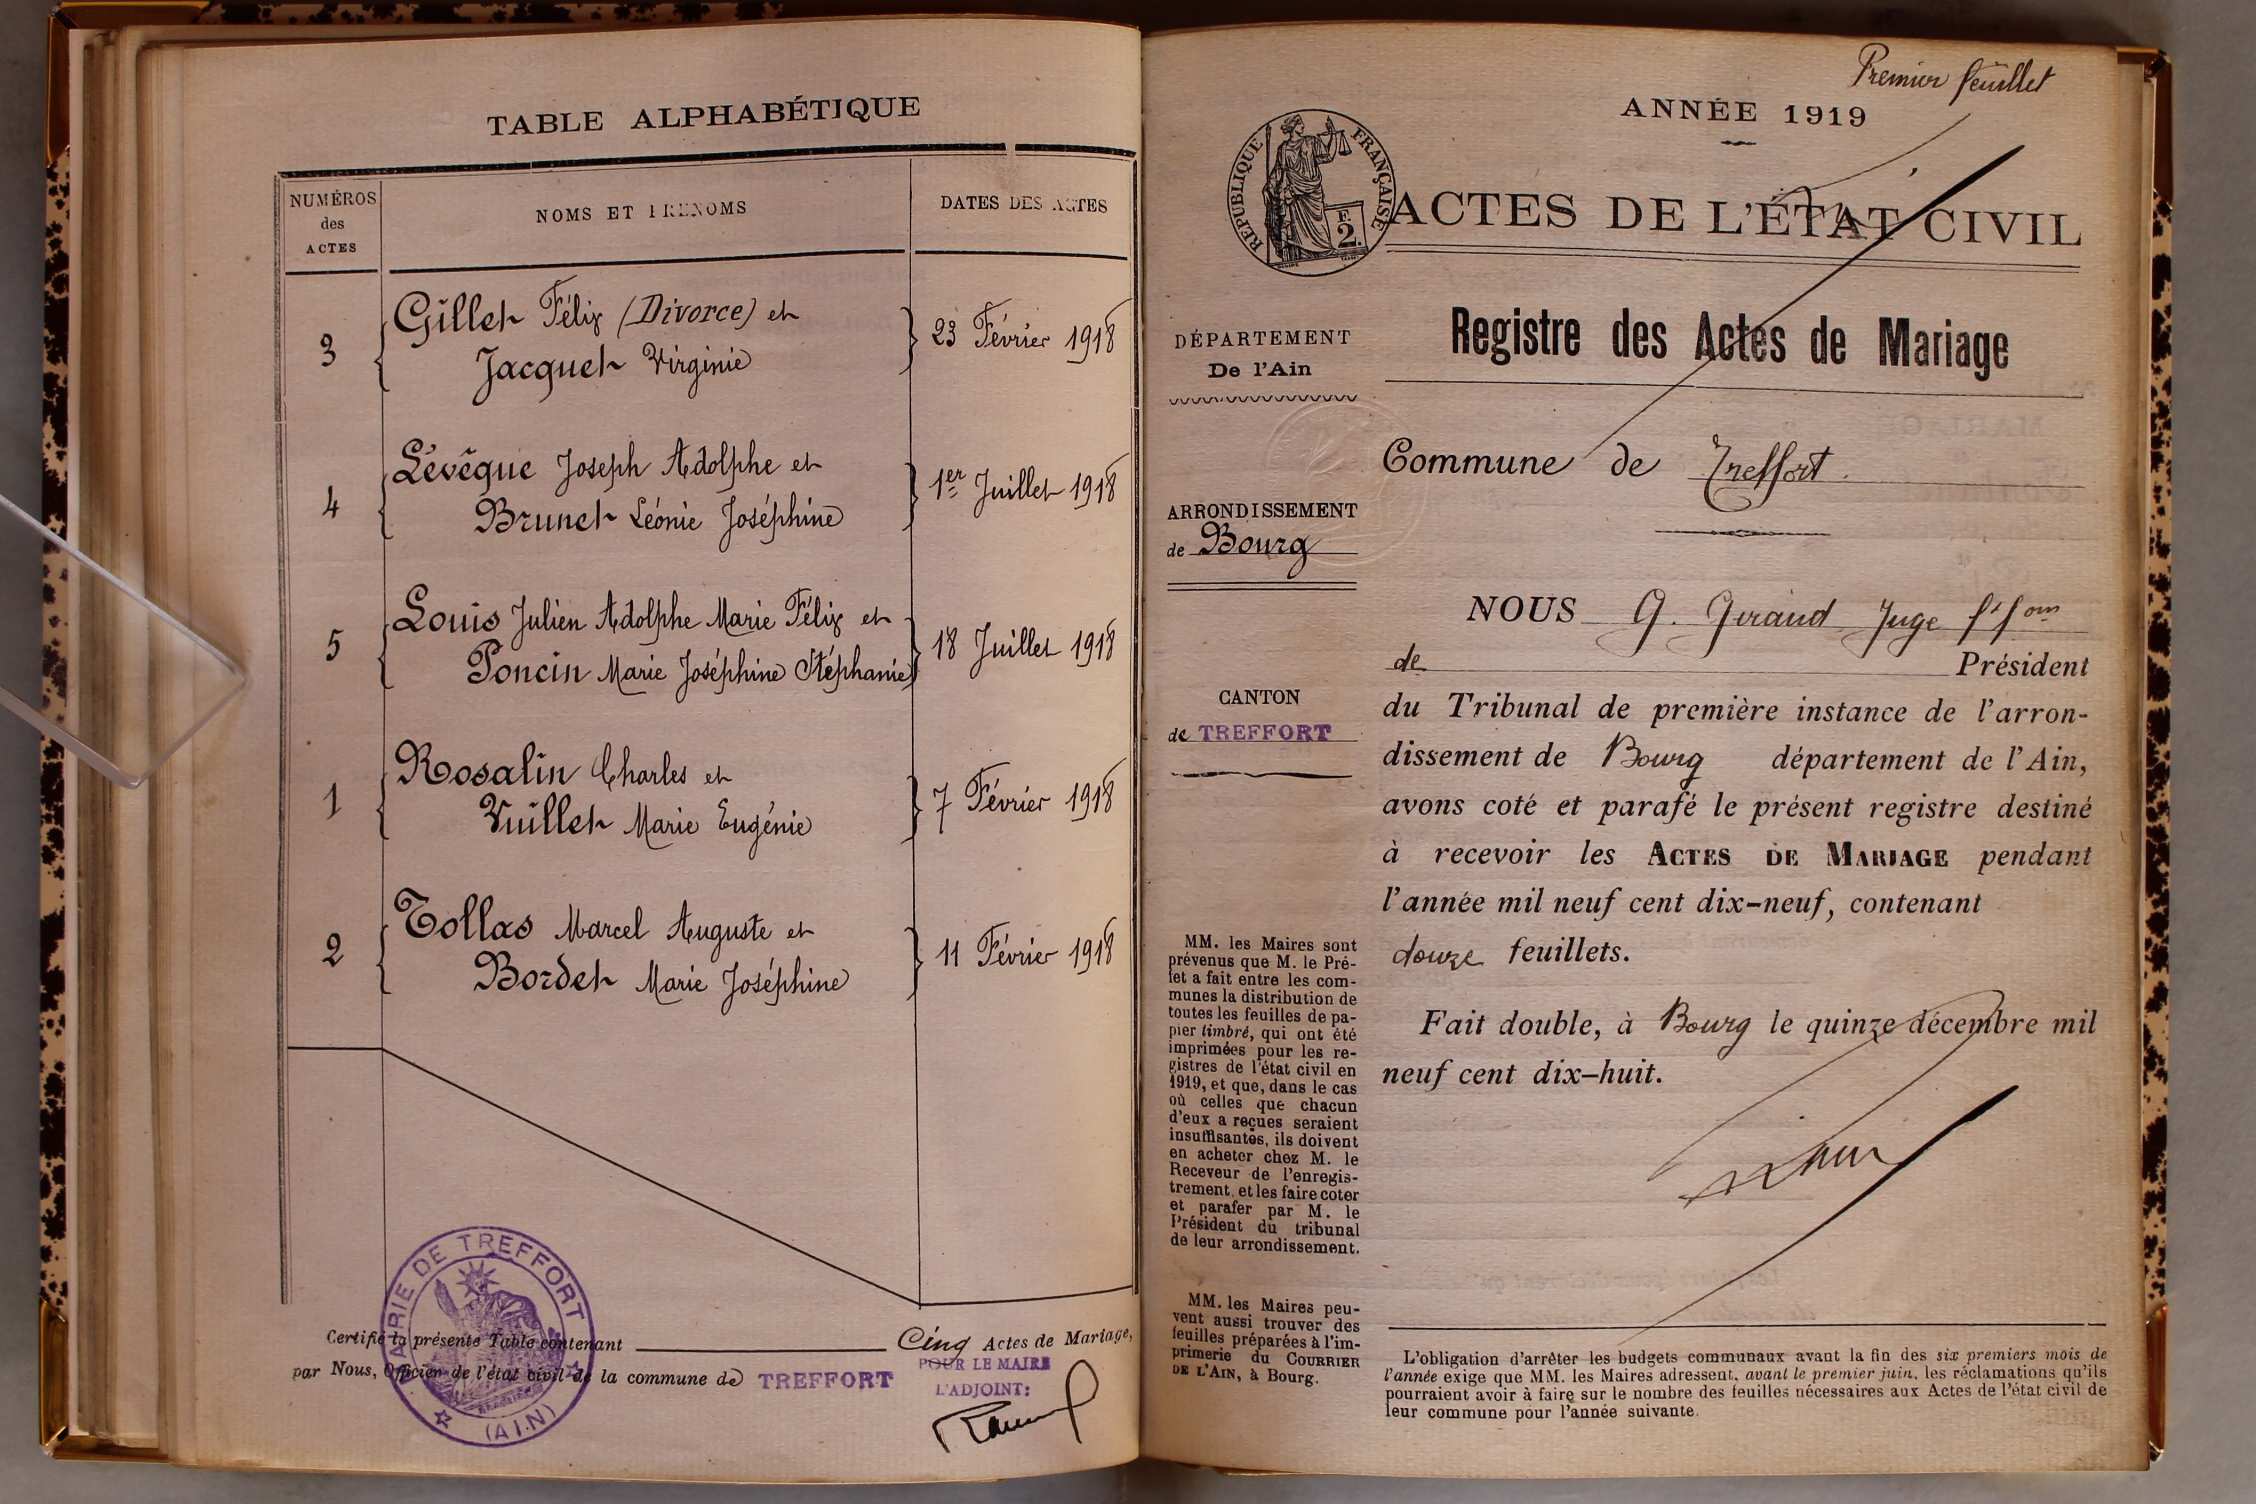 TABLE ALPHABÉTIQUE
NUMÉROS
des
ACTES
NOMS ET PRÉNOMS
DATES DES ACTES
3 Gillet Félix (Divorce) et
Jacquet Virginie
23 Février 1918
4 Lévêque Joseph Adolphe et
Brunet Léonie Joséphine
1er Juillet 1918
5 Louis Julien Adolphe Marie Félix et
Poncin Marie Joséphine Stéphanie
18 Juillet 1918
1 Rosalin Charles et
Vuillet Marie Eugénie
7 Février 1918
2 Tollas Marcel Auguste et
Bordet Marie Joséphine
11 Février 1918
MAIRIE DE TREFFORT
(AIN)
Certifié la présente Table contenant Cinq Actes de Mariage,
par Nous, Officier de l'état civil de la commune de TREFFORT
POUR LE MAIRE
L'ADJOINT:
Premier feuillet
ANNÉE 1919
RÉPUBLIQUE FRANÇAISE
F.
2.
ACTES DE L'ÉTAT CIVIL
Registre des Actes de Mariage
DÉPARTEMENT
De l'Ain
Commune de Treffort.
ARRONDISSEMENT
de Bourg
CANTON
de TREFFORT
NOUS G. Giraud Juge ff on
de Président
du Tribunal de première instance de l'arron-
dissement de Bourg département de l'Ain,
avons coté et parafé le présent registre destiné
à recevoir les ACTES DE MARIAGE pendant
l'année mil neuf cent dix-neuf, contenant
douze feuillets.
Fait double, à Bourg le quinze décembre mil
neuf cent dix-huit.
MM. les Maires sont
prévenus que M. le Pré-
fet a fait entre les com-
munes la distribution de
toutes les feuilles de pa-
pier timbré, qui ont été
imprimées pour les re-
gistres de l'état civil en
1919, et que, dans le cas
où celles que chacun
d'eux a reçues seraient
insuffisantes, ils doivent
en acheter chez M. le
Receveur de l'enregis-
trement, et les faire coter
et parafer par M. le
Président du tribunal
de leur arrondissement.
MM. les Maires peu-
vent aussi trouver des
feuilles préparées à l'im-
primerie du COURRIER
DE L'AIN, à Bourg.
L'obligation d'arrêter les budgets communaux avant la fin des six premiers mois de
l'année exige que MM. les Maires adressent, avant le premier juin, les réclamations qu'ils
pourraient avoir à faire sur le nombre des feuilles nécessaires aux Actes de l'état civil de
leur commune pour l'année suivante.